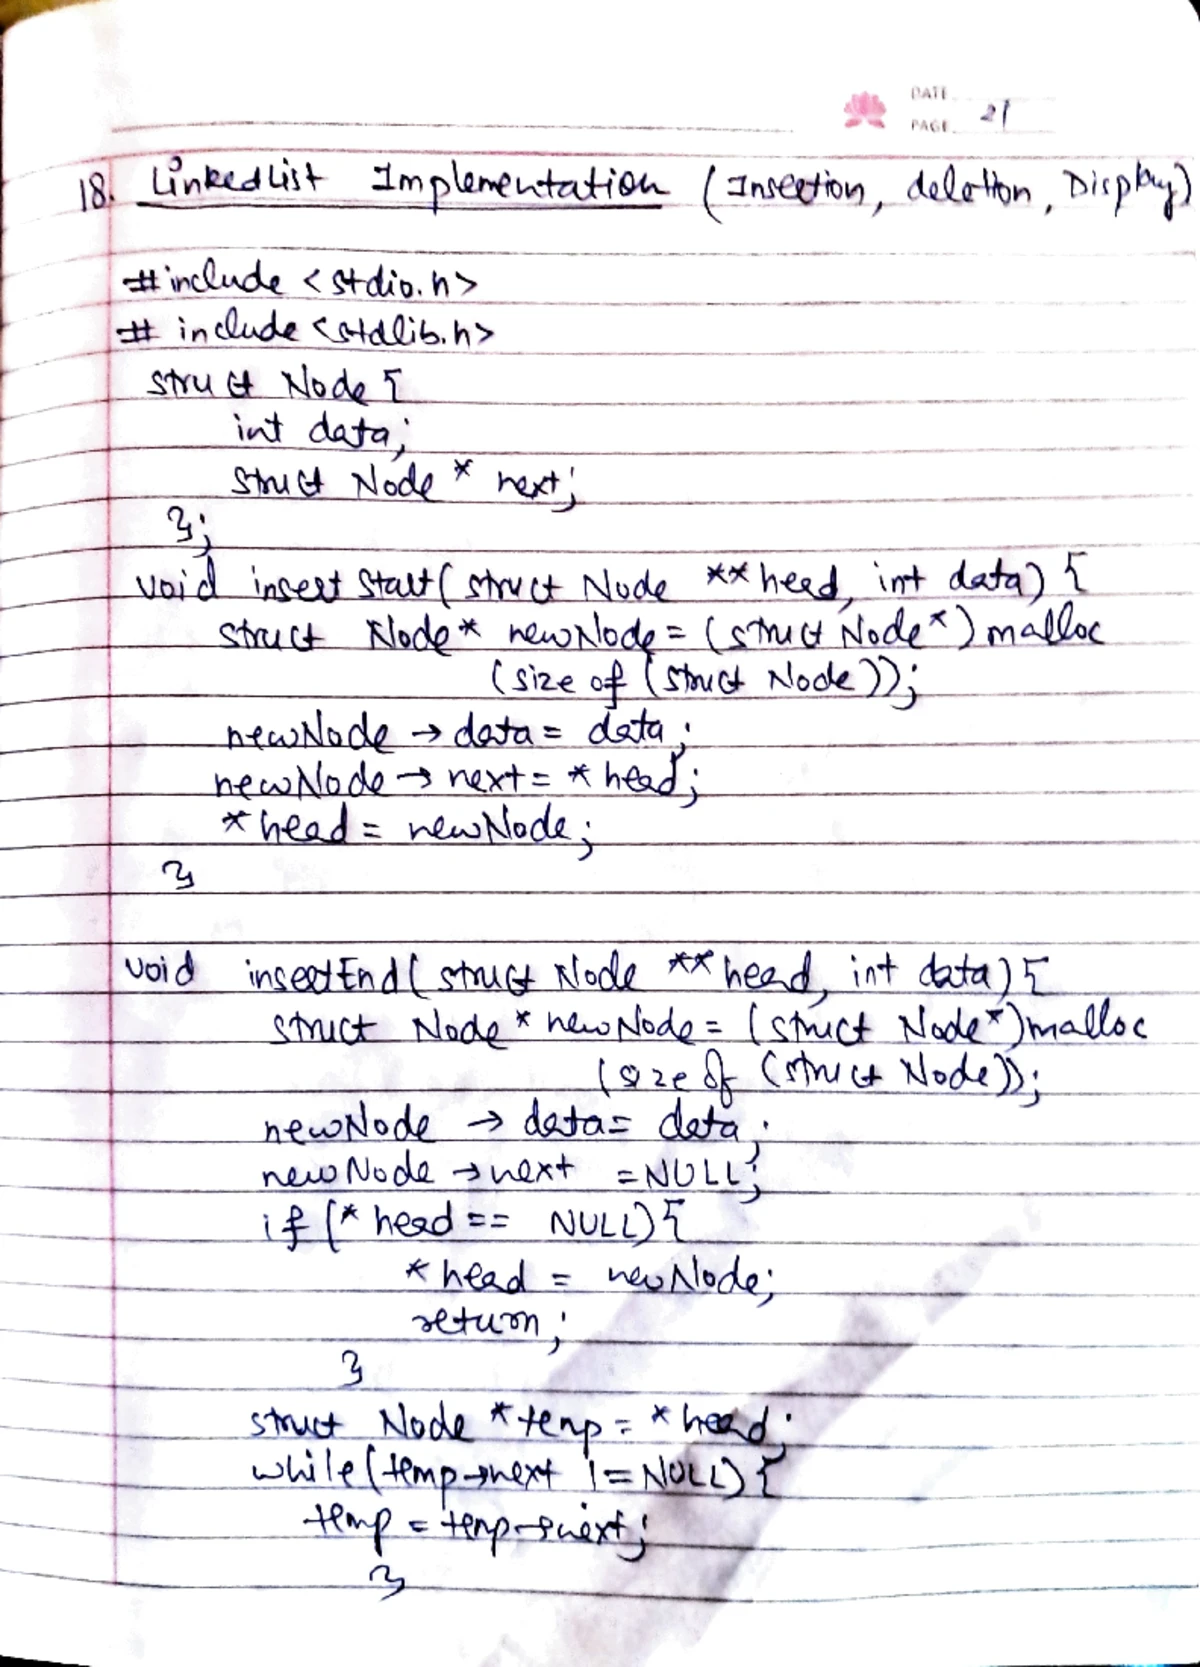 DATE
PAGE 21
18. LinkedList Implementation (Insertion, deletion, Display)
#include <stdio.h>
# include <stdlib.h>
struct Node {
int data;
struct Node * next;
};
void insert Start( struct Node **head, int data) {
struct Node* newNode = (struct Node*) malloc
(size of (struct Node));
newNode → data = data;
newNode → next = *head;
*head = newNode;
}
void insertEnd( struct Node **head, int data) {
struct Node * newNode = (struct Node*)malloc
(size of (struct Node));
newNode → data = data;
newNode → next = NULL;
if (* head == NULL) {
* head = newNode;
return;
}
struct Node *temp = *head;
while (temp→next != NULL) {
temp = temp→next;
}